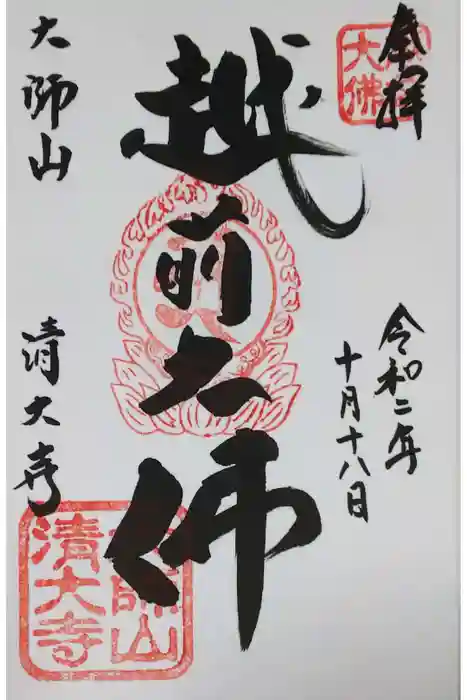 奉拝
令和二年
十月十八日
越前大佛
大師山
清大寺
大師山
清大寺